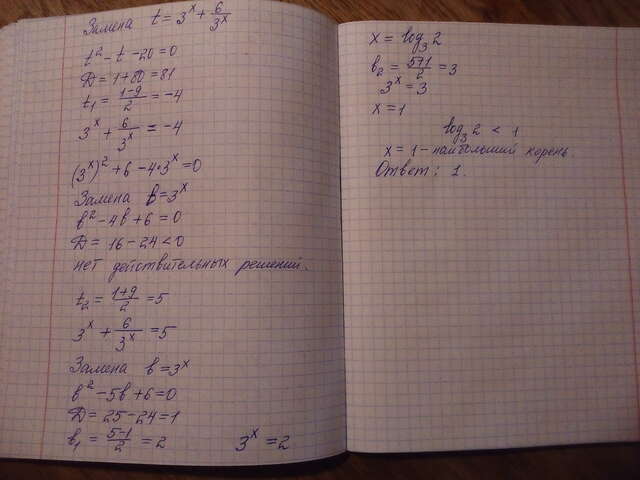 Замена t = 3^x + 6/3^x
t² - t - 20 = 0
D = 1 + 80 = 81
t₁ = (1-9)/2 = -4
3^x + 6/3^x = -4
(3^x)² + 6 - 4·3^x = 0
Замена b = 3^x
b² - 4b + 6 = 0
D = 16 - 24 < 0
нет действительных решений.
t₂ = (1+9)/2 = 5
3^x + 6/3^x = 5
Замена b = 3^x
b² - 5b + 6 = 0
D = 25 - 24 = 1
b₁ = (5-1)/2 = 2 3^x = 2
x = log₃2
b₂ = (5+1)/2 = 3
3^x = 3
x = 1
log₃2 < 1
x = 1 - наибольший корень
Ответ: 1.